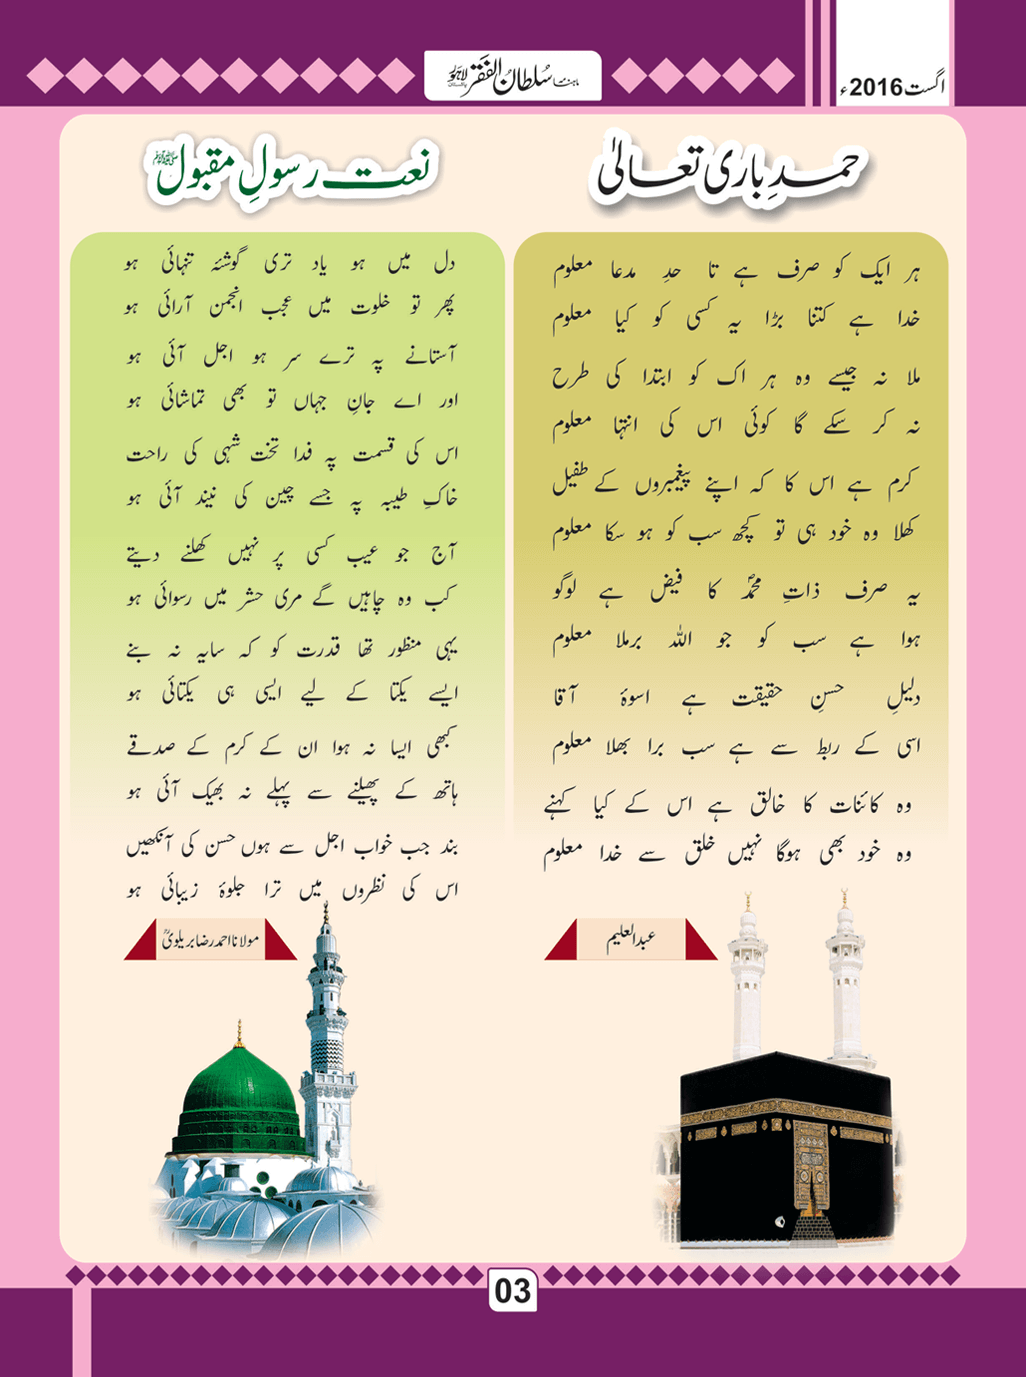 ماہنامہ سلطان الفقر لاہور
اگست 2016ء
حمدِ باری تعالیٰ
ہر ایک کو صرف ہے تا حدِ مدعا معلوم
خدا ہے کتنا بڑا یہ کسی کو کیا معلوم
ملا نہ جیسے وہ ہر اک کو ابتدا کی طرح
نہ کر سکے گا کوئی اس کی انتہا معلوم
کرم ہے اس کا کہ اپنے پیغمبروں کے طفیل
کھلا وہ خود ہی تو کچھ سب کو ہو سکا معلوم
یہ صرف ذاتِ محمدؐ کا فیض ہے لوگو
ہوا ہے سب کو جو اللہ برملا معلوم
دلیلِ حسنِ حقیقت ہے اسوۂ آقا
اسی کے ربط سے ہے سب برا بھلا معلوم
وہ کائنات کا خالق ہے اس کے کیا کہنے
وہ خود بھی ہوگا نہیں خلق سے خدا معلوم
عبدالعلیم
نعت رسولِ مقبول ﷺ
دل میں ہو یاد تری گوشۂ تنہائی ہو
پھر تو خلوت میں عجب انجمن آرائی ہو
آستانے پہ ترے سر ہو اجل آئی ہو
اور اے جانِ جہاں تو بھی تماشائی ہو
اس کی قسمت پہ فدا تخت شہی کی راحت
خاکِ طیبہ پہ جسے چین کی نیند آئی ہو
آج جو عیب کسی پر نہیں کھلنے دیتے
کب وہ چاہیں گے مری حشر میں رسوائی ہو
یہی منظور تھا قدرت کو کہ سایہ نہ بنے
ایسے یکتا کے لیے ایسی ہی یکتائی ہو
کبھی ایسا نہ ہوا ان کے کرم کے صدقے
ہاتھ کے پھیلنے سے پہلے نہ بھیک آئی ہو
بند جب خواب اجل سے ہوں حسن کی آنکھیں
اس کی نظروں میں ترا جلوۂ زیبائی ہو
مولانا احمد رضا بریلویؒ
03